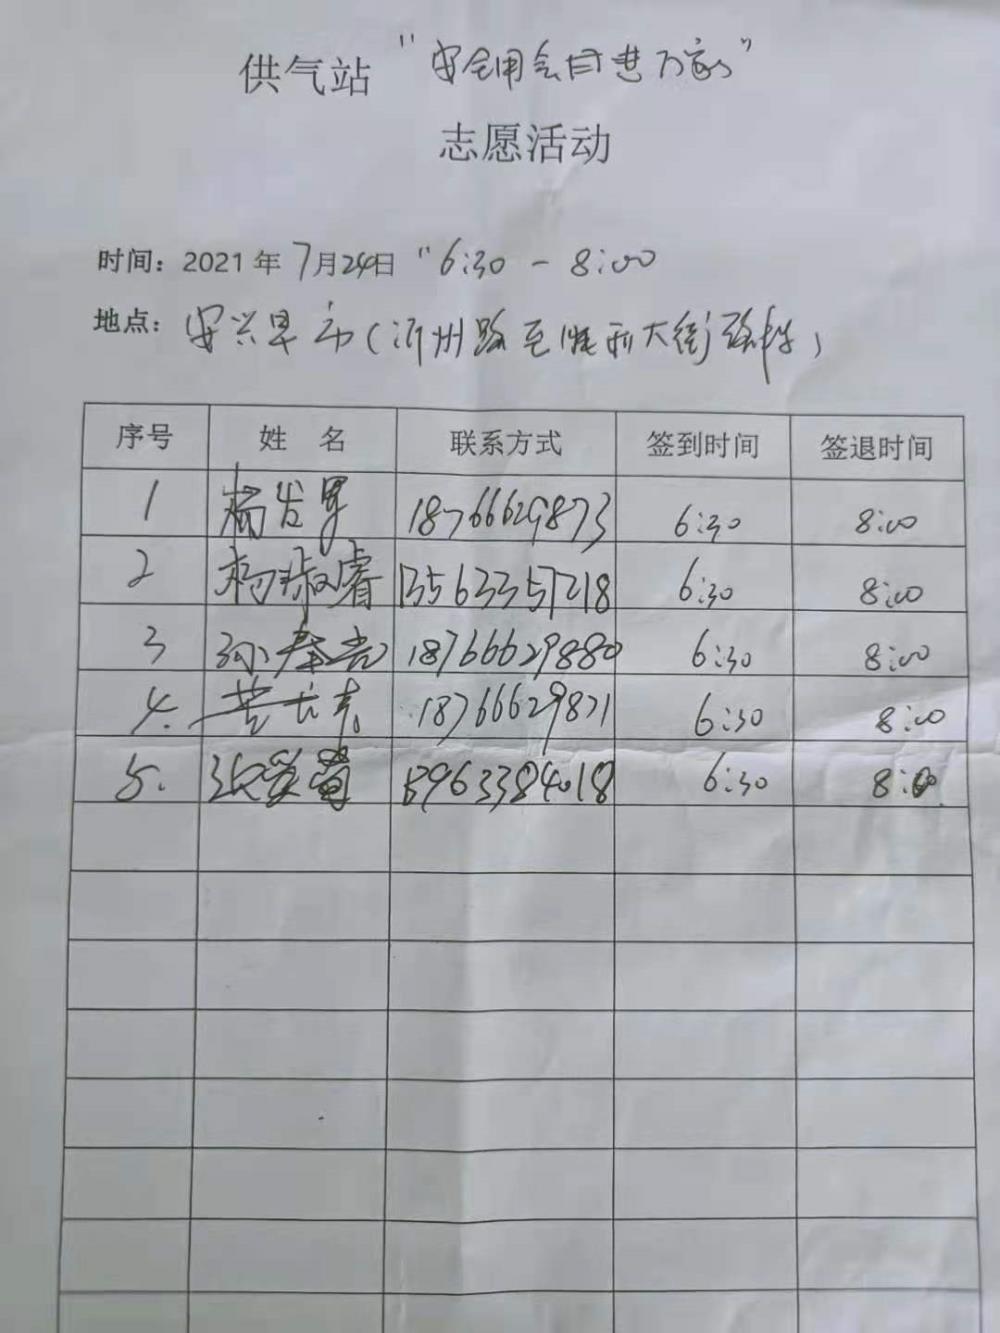 供气站 "安全用气 进万家"
志愿活动
时间：2021年7月24日 "6:30 - 8:00
地点：安兴早市(沂州路至胜利大街)
序号 姓 名 联系方式 签到时间 签退时间
1 杨发军 18766629873 6:30 8:00
2 杨淑睿 13563357218 6:30 8:00
3 孙 18766629880 6:30 8:00
4. 18766629821 6:30 8:00
5. 张 13963384018 6:30 8:00